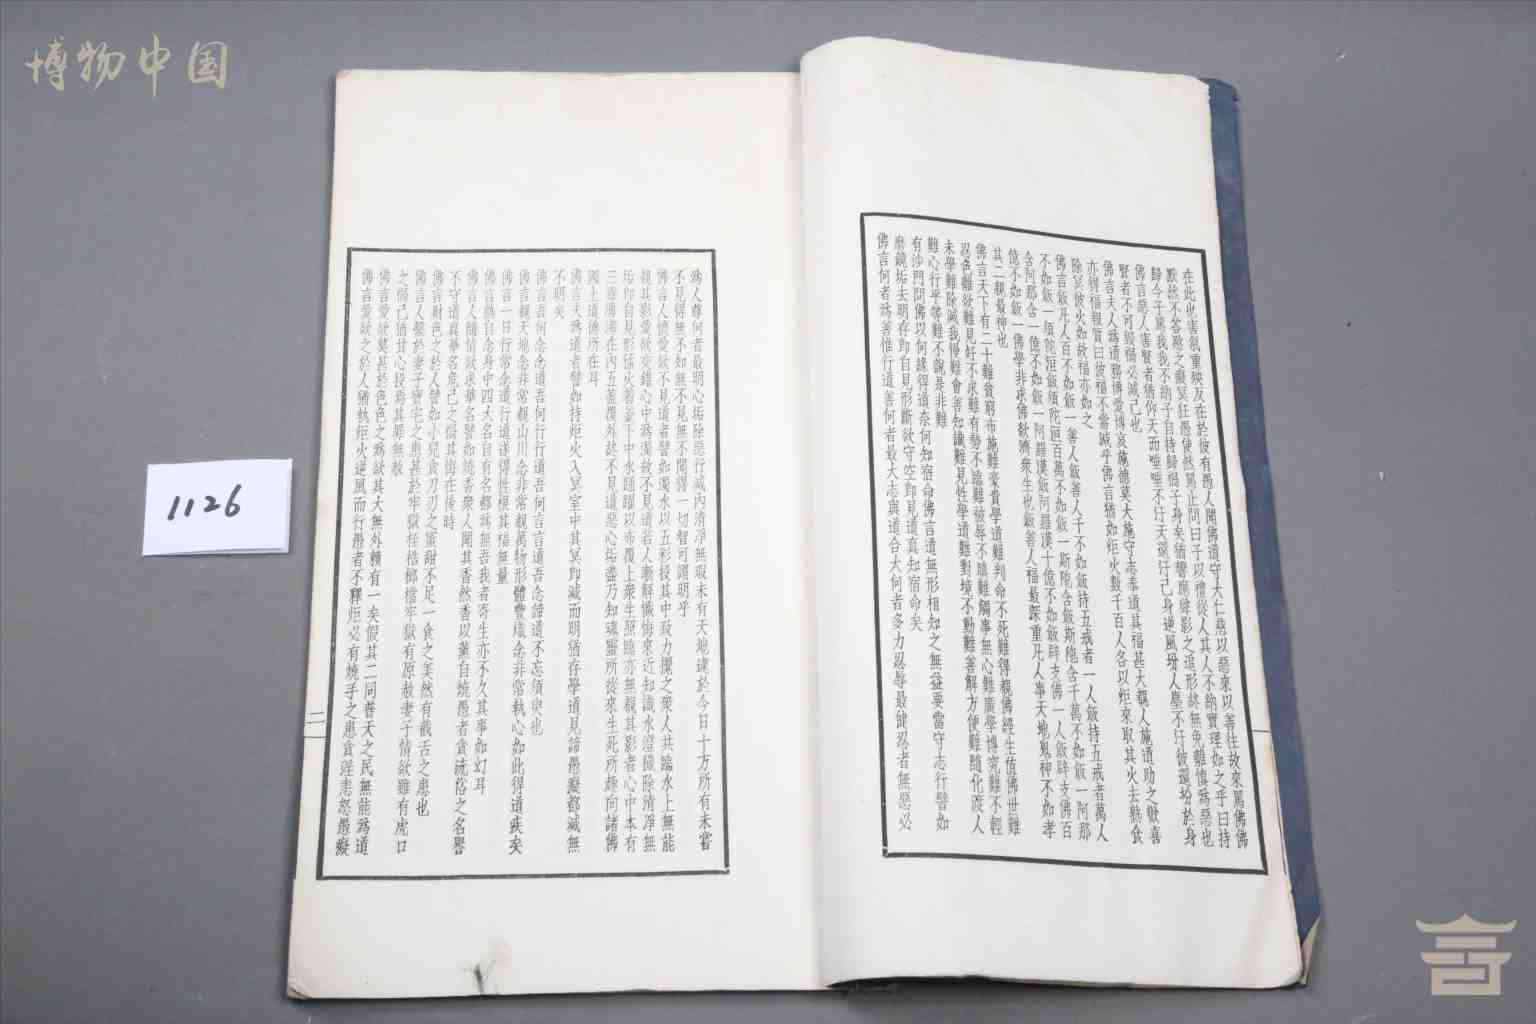 博物中国
1126
在此此害氣重殃反在於彼有愚人聞佛道守大仁慈以惡來以善往故來罵佛佛
默然不答愍之癡冥狂愚使然罵止問曰子以禮從人其人不納實理如之乎曰持
歸今子罵我我不納子自持歸禍子身矣猶響應聲影之追形終無免離慎為惡也
佛言惡人害賢者猶仰天而唾唾不汙天還汙己身逆風坋人塵不汙彼還坋於身
賢者不可毀禍必滅己也
佛言夫人為道務博愛博哀施德莫大施守志奉道其福甚大覩人施道助之歡喜
亦得福報質曰彼福不當減乎佛言猶如炬火數千百人各以炬來取其火去熟食
除冥彼火如故福亦如之
佛言飯凡人百不如飯一善人飯善人千不如飯持五戒者一人飯持五戒者萬人
不如飯一須陀洹飯須陀洹百萬不如飯一斯陀含飯斯陀含千萬不如飯一阿那
含阿那含一億不如飯一阿羅漢飯阿羅漢十億不如飯辟支佛一人飯辟支佛百
億不如飯一佛學非求佛欲濟衆生也飯善人福最深重凡人事天地鬼神不如孝
其二親最神也
佛言天下有二十難貧窮布施難豪貴學道難判命不死難得覩佛經難生值佛世難
忍色離欲難見好不求難有勢不臨難被辱不瞋難觸事無心難廣學博究難不輕
未學難除滅我慢難會善知識難見性學道難對境不動難善解方便難隨化度人
難心行平等難不說是非難
有沙門問佛以何緣得道奈何知宿命佛言道無形相知之無益要當守志行譬如
磨鏡垢去明存即自見形斷欲守空即見道真知宿命矣
佛言何者為善惟行道善何者最大志與道合大何者多力忍辱最健忍者無惡必
為人尊何者最明心垢除惡行滅內清淨無瑕未有天地逮於今日十方所有未嘗
不見得無不知無不見無不聞得一切智可謂明乎
佛言人懷愛欲不見道者譬如濁水以五彩投其中致力攪之衆人共臨水上無能
覩其影愛欲交錯心中為濁故不見道若人漸解懺悔來近知識水澄穢除清淨無
垢即自見形猛火着釜下中水踊躍以布覆上衆生照臨亦無覩其影者心中本有
三毒涌沸在內五蓋覆外終不見道惡心垢盡乃知魂靈所從來生死所趣向諸佛
國土道德所在耳
佛言夫為道者譬如持炬火入冥室中其冥即滅而明猶存學道見諦愚癡都滅無
不明矣
佛言吾何念念道吾何行行道吾何言言道吾念諦道不忘須臾也
佛言覩天地念非常覩山川念非常覩萬物形體豐熾念非常執心如此得道疾矣
佛言一日行常念道行道遂得信根其福無量
佛言熟自念身中四大名自有名都為無吾我者寄生亦不久其事如幻耳
佛言人隨情欲求華名譬如燒香衆人聞其香然香以薰自燒愚者貪流俗之名譽
不守道真華名危己之禍其悔在後時
佛言財色之於人譬如小兒貪刀刃之蜜甜不足一食之美然有截舌之患也
佛言人繫於妻子寶宅之患甚於牢獄桎梏榔檔牢獄有原赦妻子情欲雖有虎口
之禍己猶甘心投焉其罪無赦
佛言愛欲莫甚於色色之為欲其大無外賴有一矣假其二同普天之民無能為道
佛言愛欲之於人猶執炬火逆風而行愚者不釋炬必有燒手之患貪婬恚怒愚癡
二